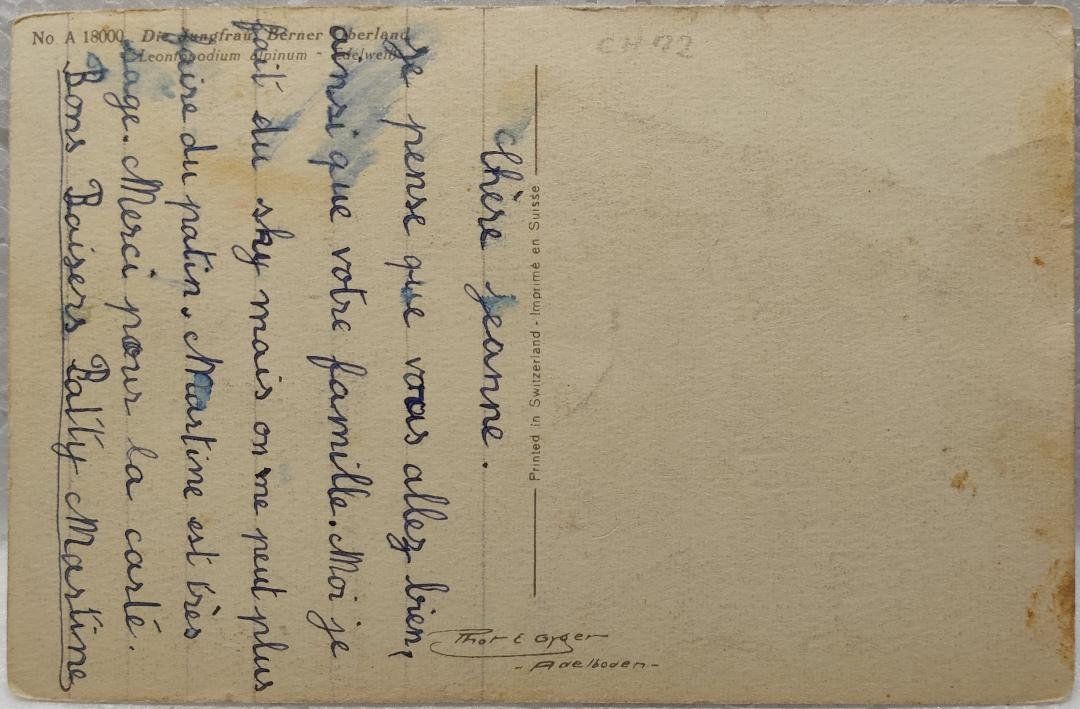 No A 18000 Die Jungfrau, Berner Oberland
Leontopodium alpinum - Edelweiß
CH 172
chère jeanne.
je pense que vous allez bien,
ainsi que votre famille. Moi je
fait du sky mais on me peut plus
faire du patin. Martine est très
sage. Merci pour la carte.
Bons Baisers Patty Martine
Printed in Switzerland - Imprimé en Suisse
Phot E Gyger
- Adelboden -